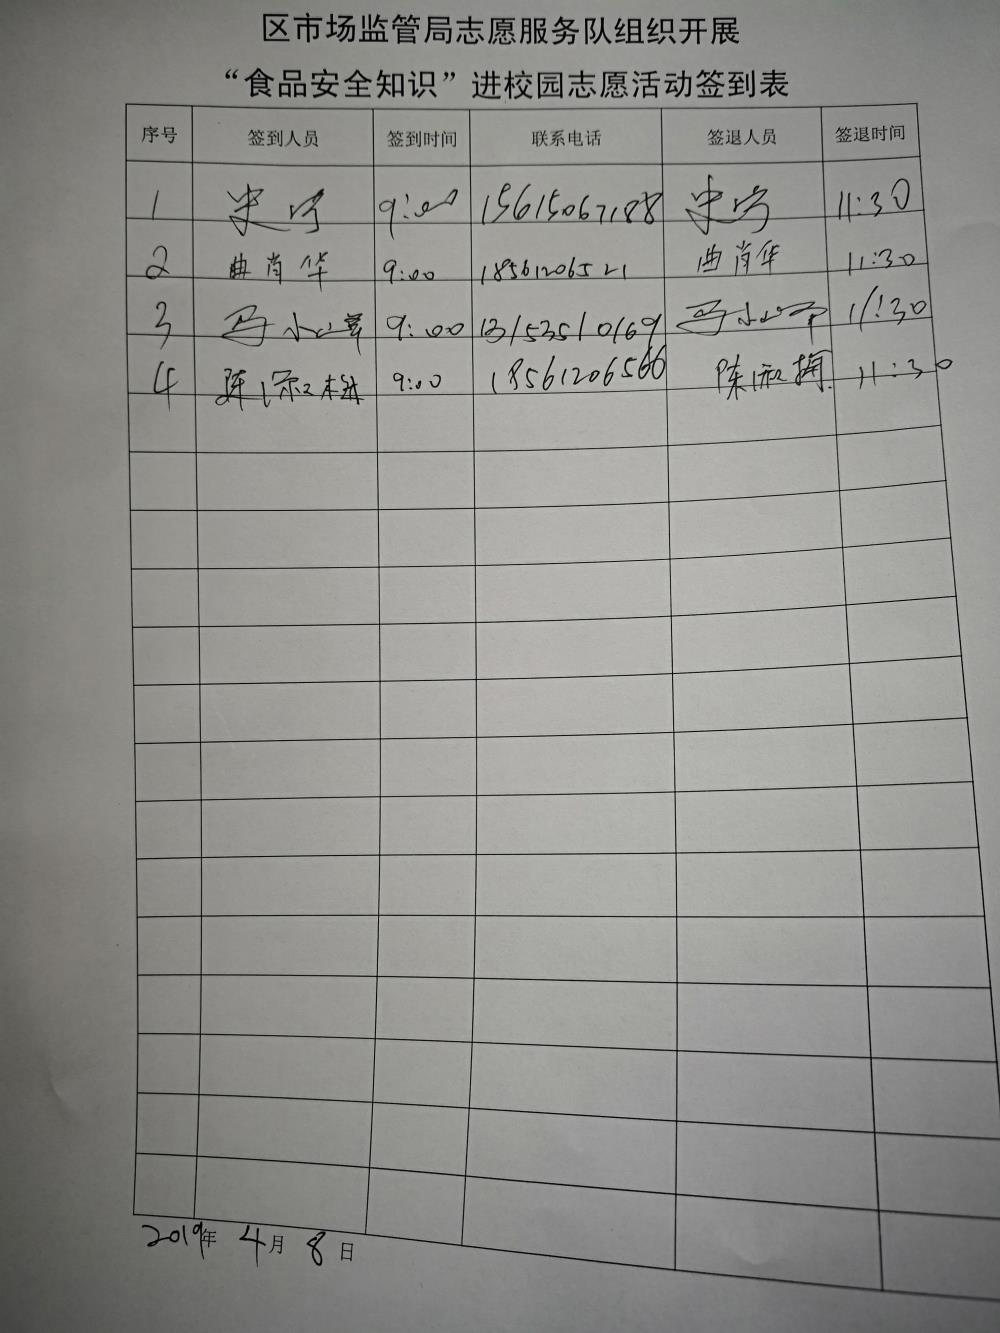 区市场监管局志愿服务队组织开展
“食品安全知识”进校园志愿活动签到表
序号 签到人员 签到时间 联系电话 签退人员 签退时间
1 9:00 15615067188 11:30
2 曲肖华 9:00 18561206521 曲肖华 11:30
3 9:00 13153510169 11:30
4 陈 9:00 18561206566 陈 11:30
2019年 4月 8日